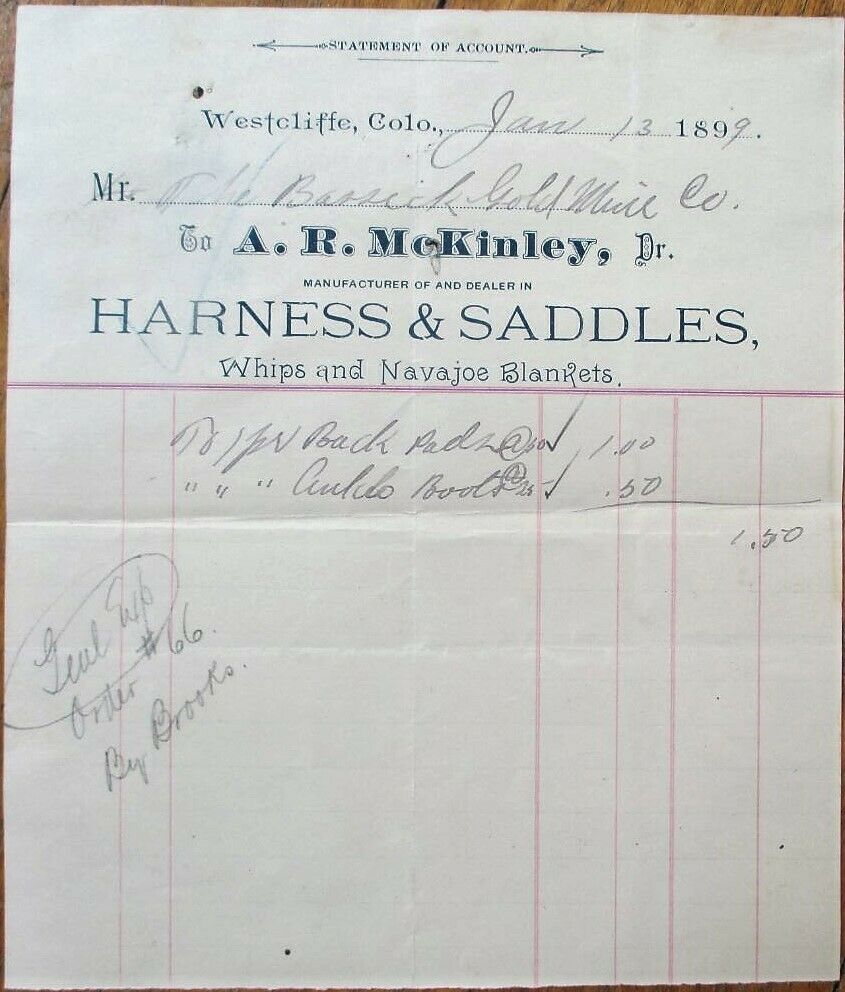 STATEMENT OF ACCOUNT.
Westcliffe, Colo., Jan 13 1899.
Mr. The Bassick Gold Mine Co.
To A. R. McKinley, Dr.
MANUFACTURER OF AND DEALER IN
HARNESS & SADDLES,
Whips and Navajoe Blankets.
To 1 pr Back Pads @ 50 1.00
" " " Ankle Boots @ 25 .50
1.50
Genl Exp
Order #66.
By Brooks.